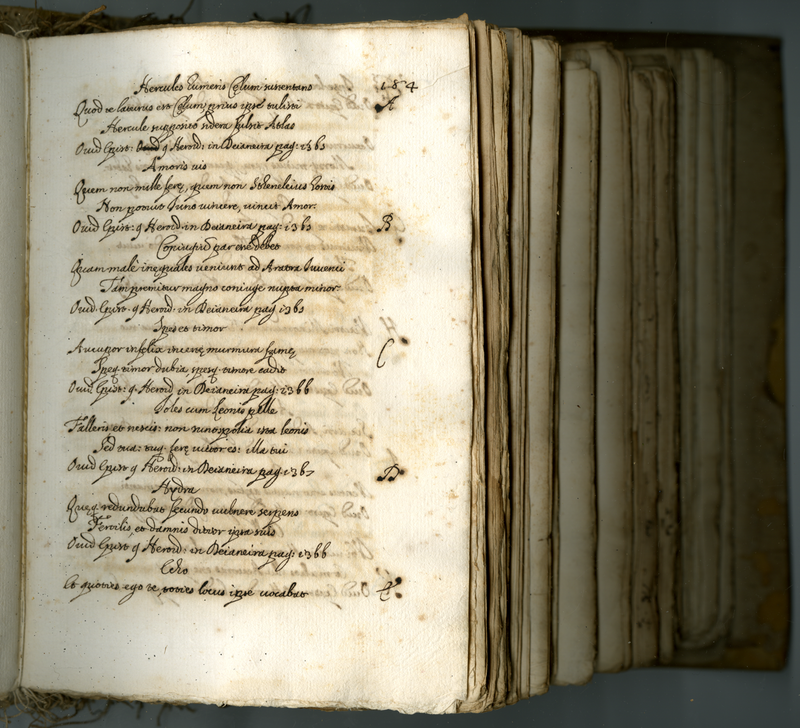 Hercules humeris Celum sustentans 184
Quod te laturus est Celum prius ipse tulisti A
Hercule supposito sidera fulsit Atlas
Ovid Epist: q Heroid: in Deianeira pag: 1365
Amoris vis
Quem non mille ferę, quem non Stheneleius hostis
Non potuit Juno vincere, vincit Amor.
Ovid Epist: q Heroid: in Deianeira pag: 1365 B
Coniugiū par esse debet
Quam malè inequales veniunt ad Aratra Juvenci
Tam premitur magno coniuge nupta minor.
Ovid. Epist. q Heroid: in Deianeira pag 1365
Spes et timor
Aucupor infelix incertę murmura famę C
Speq. timor dubia, spesq. timore cadit
Ovid Epist: q. Heroid in Deianeira pag: 1366
Joles cum Leonis pelle
Falleris et nescis: non sunt spolia ista leonis
Sed tua: tuq. ferę victor es: illa tui
Ovid Epist q Heroid: in Deianeira pag 1367 D
Hydra
Quęq. redundabat fecundo vulnere serpens
Fertilis, et damnis ditior ipsa suis
Ovid Epist q Heroid: in Deianeira pag: 1366
Echo
Et quoties ego te, toties locus ipse vocabat E